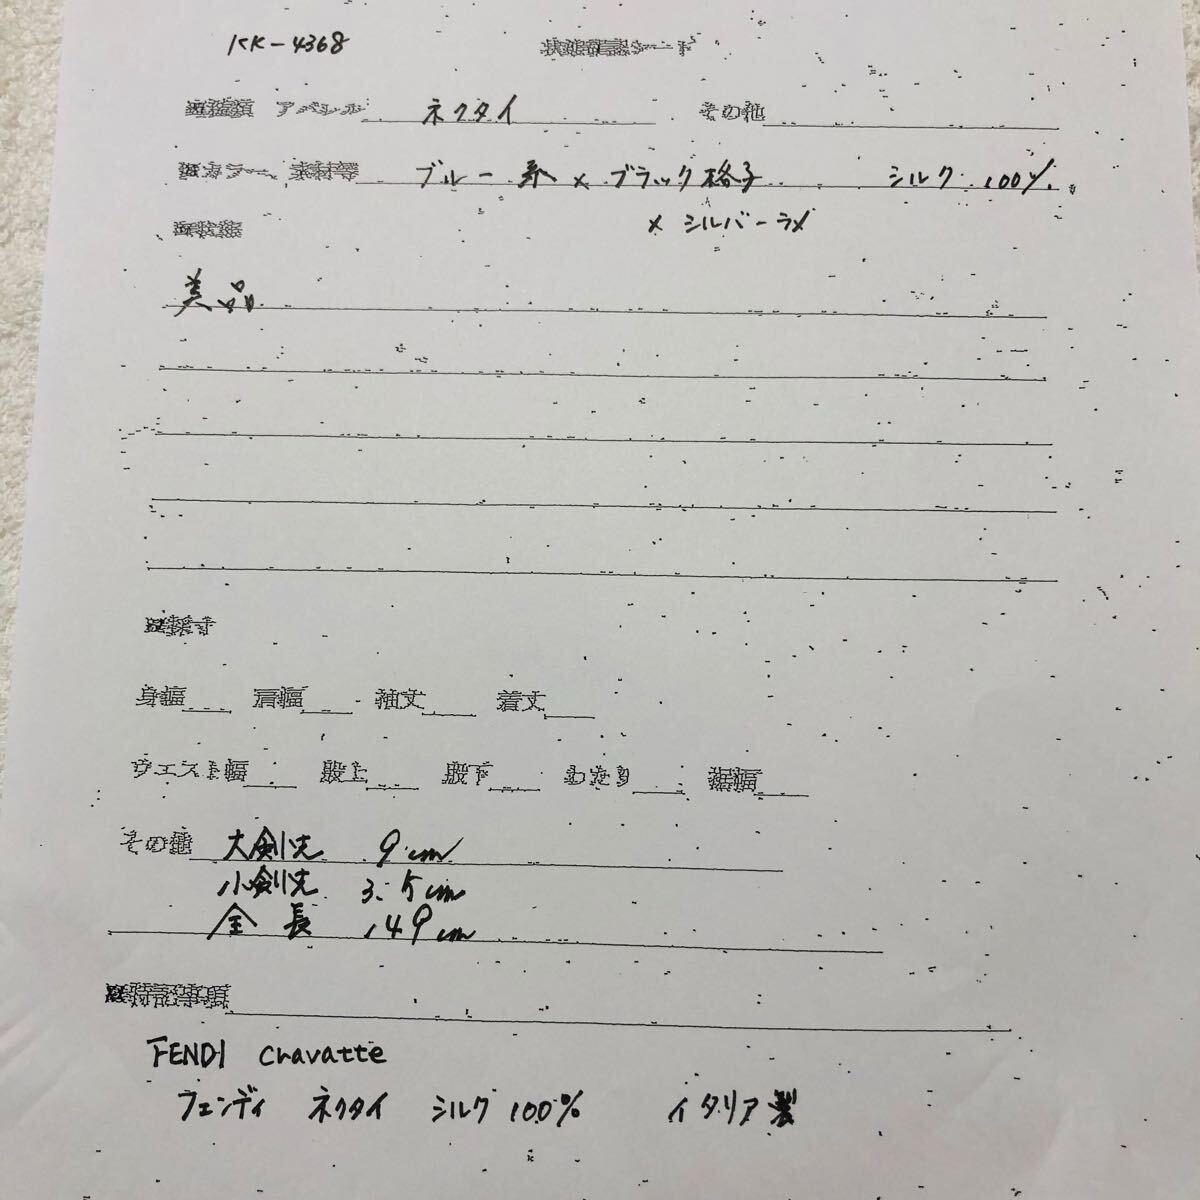 KK-4368 状態確認シート
アパレル ネクタイ その他
カラー、素材等 ブルー系×ブラック格子 シルク 100%
×シルバーラメ
美品
採寸
身幅 肩幅 袖丈 着丈
ウエスト幅 股上 股下 わたり 裾幅
その他 大剣先 9cm
小剣先 3.5cm
全長 149cm
特記事項
FENDI Cravatte
フェンディ ネクタイ シルク100% イタリア製